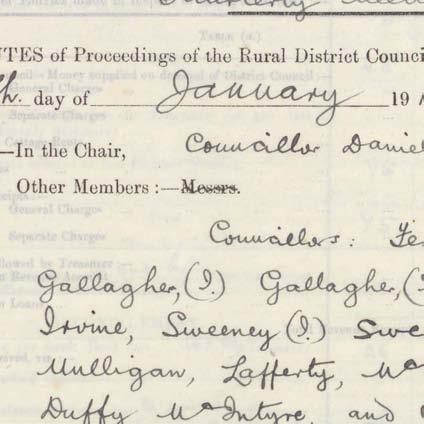 Quarterly Meet
UTES of Proceedings of the Rural District Counci
th. day of January 19
—In the Chair, Councillor Daniel
Other Members :—Messrs.
Councillors: Fe
Gallagher, (J.) Gallagher, (
Irvine, Sweeney (J.) Swe
Mulligan, Lafferty, Mc
Duffy McIntyre, and